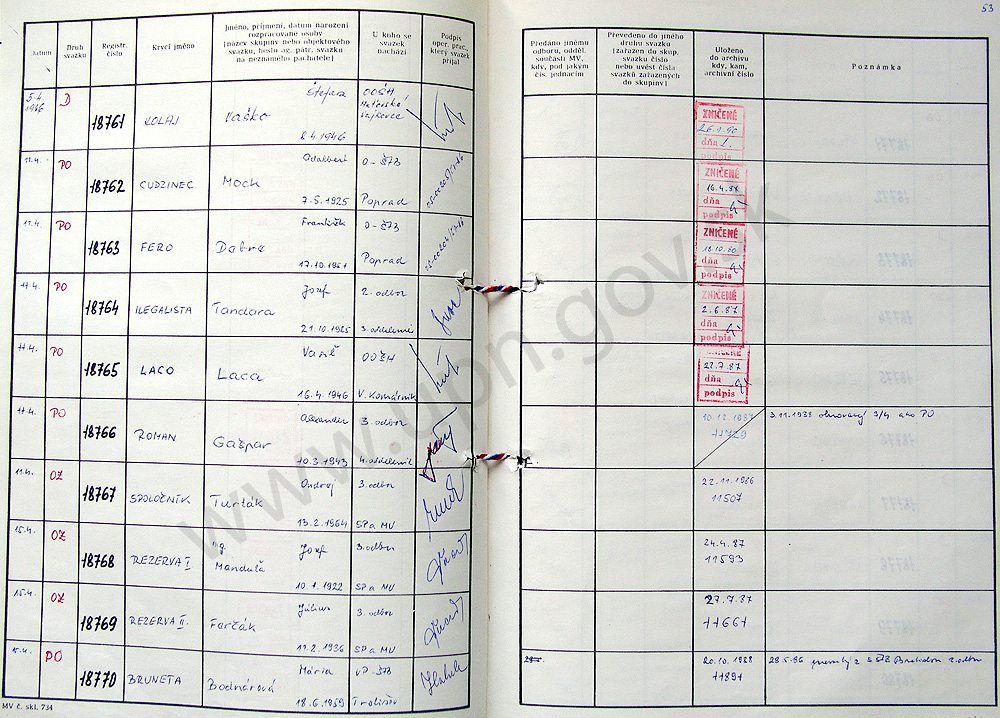 53
Datum
Druh svazku
Registr. číslo
Krycí jméno
Jméno, příjmení, datum narození
rozpracované osoby
(název skupiny nebo objektového
svazku, heslo ag. pátr. svazku
na neznámého pachatele)
U koho se
svazek
nachází
Podpis
oper. prac.,
který svazek
přijal
Předáno jinému
odboru, odděl.
součásti MV,
kdy, pod jakým
čís. jednacím
Převedeno do jiného
druhu svazku
(zařazen do skup.
svazku číslo
nebo uvést čísla
svazků zařazených
do skupiny)
Uloženo
do archivu
kdy, kam,
archivní číslo
Poznámka
5.4. 1966 D 18761 KOLAJ Štefan Vaško 8.4.1946 OOŠH Vajkovce
ZNIČENÉ 26.1.90 dňa podpis
11.4. PO 18762 CUDZINEC Adalbert Mock 7.5.1925 O-ŠTB Poprad
ZNIČENÉ 16.4.87 dňa podpis
11.4. PO 18763 FERO František Dabra 17.10.1951 O-ŠTB Poprad
ZNIČENÉ dňa podpis
11.4. PO 18764 ILEGALISTA Jozef Tandara 21.10.1925 2. odbor 3. oddelenie
ZNIČENÉ 2.6.87 dňa podpis
11.4. PO 18765 LACO Vasiľ Laca 16.4.1946 OOŠH V. Komárnik
ZNIČENÉ 22.7.87 dňa podpis
11.4. PO 18766 ROMAN Alexander Gašpar 10.3.1943 3. odbor 4. oddelenie
10.12.1987 11729 3.11.1988 obnovený 3/4 ako PO
11.4. OZ 18767 SPOLOČNÍK Ondrej Turták 13.2.1964 3. odbor SP a MV
22.11.1986 11507
15.4. OZ 18768 REZERVA I Ing. Jozef Manduľa 10.1.1922 3. odbor SP a MV
24.4.87 11593
15.4. OZ 18769 REZERVA II. Július Ferčák 11.2.1936 3. odbor SP a MV
27.7.87 11661
15.4. PO 18770 BRUNETA Mária Bodnárová 18.6.1959 Trebišov
20.10.1988 11891 28.5.86
MV č. skl. 734
www.upn.gov.sk